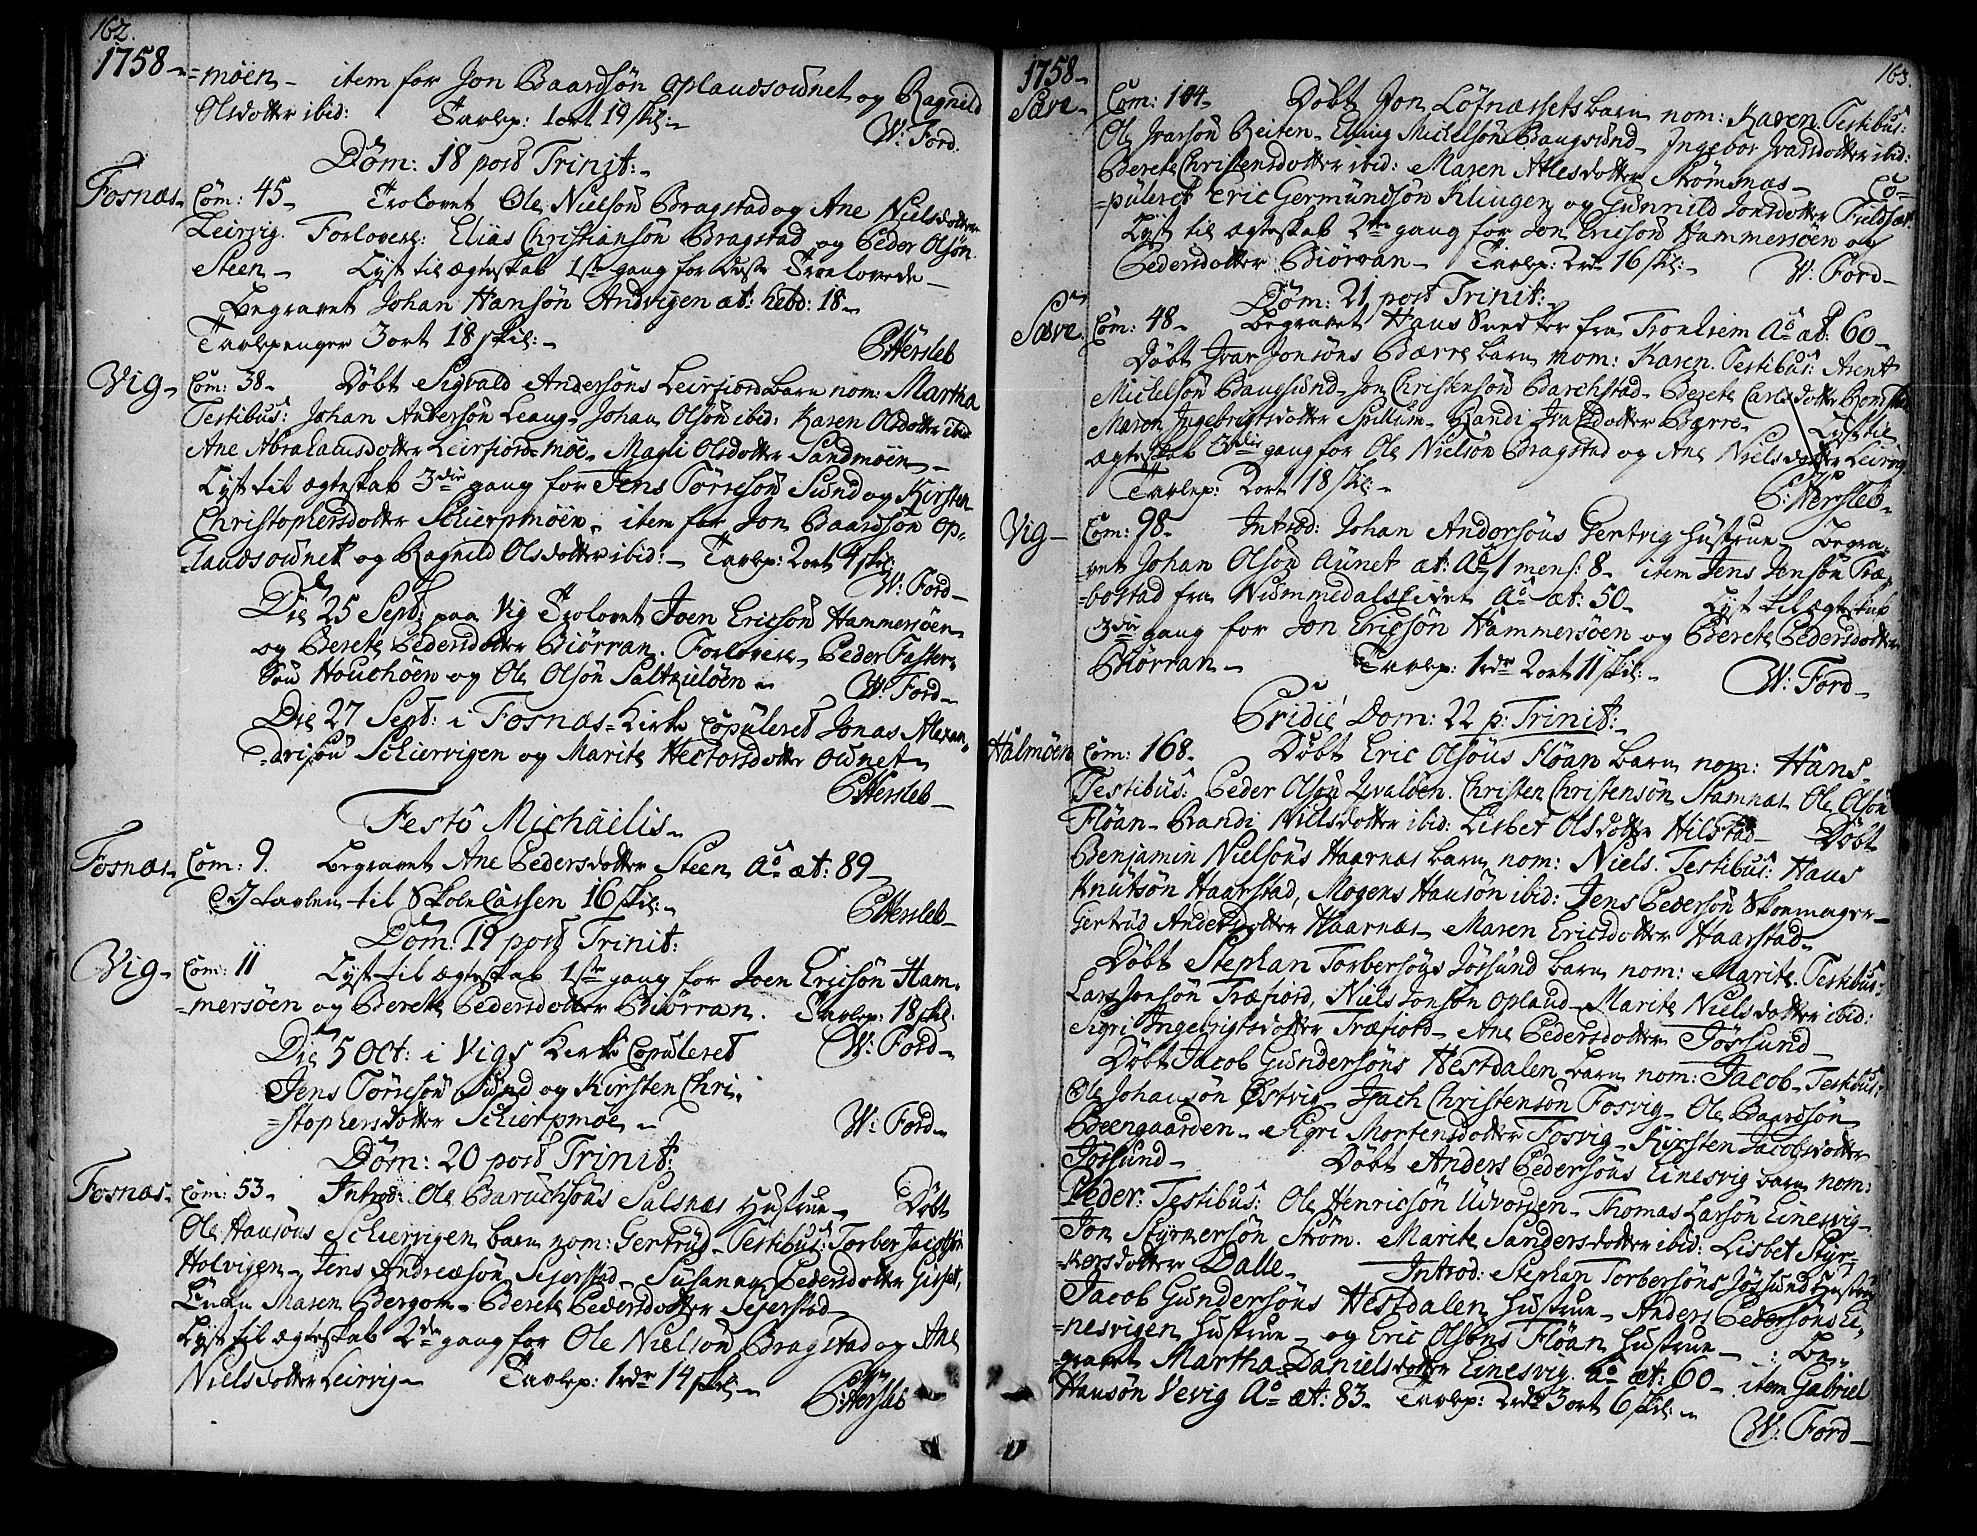 162.
1758-
=möen- item for Jon Baardsön Oplandsoŭnet og Ragnild
Olsdotter ibid: Tavlep: 1 ort 19 skil:-
W: Ford.
Dom: 18 post Trinit:-
Fosnæs- Com: 45- Trolovet Ole Nielsön Bragstad og Ane Nielsdotter
Leirvig. Forlovere: Elias Christiansön Bragstad og Peder Olsön
Steen- Lyst til ægteskab 1ste gang for disse Trolovede-
Begravet Johan Hansön Andvigen æt: hebd: 18-
Tavlepenger 3 ort 18 skil:-
C Hersleb
Vig- Com: 38- Döbt Sigvald Andersöns Leirfiord barn nom: Martha
Testibus: Johan Andersön Leang- Johan Olsön ibid: Karen Olsdotter ibid
Ane Abrahamsdotter Leirfiord=möe- Magli Olsdotter Sandmöen-
Lyst til ægteskab 3die gang for Jens Törresön Sŭnd og Kirsten
Christophersdotter Schierpmöen- item for Jon Baardsön Op-
=landsoŭnet og Ragnild Olsdotter ibid:- Tavlep: 2 ort 4 skil:
W: Ford-
Die 25 Sept: paa Vig Trolovet Joen Ericsön Hammersöen
og Berete Pedersdotter Biörran. Forlovere- Peder Faster-
sön Houchöen og Ole Olsön Saltkielöen-
W: Ford-
Die 27 Sept: i Fosnæs=Kirke Copŭleret Jonas Alexan-
=drisön Schiervigen og Marite Hectorsdotter Oŭnet-
C Hersleb-
Festo Michaelis-
Fosnæs- Com: 9. Begravet Ane Pedersdotter Steen Ao æt: 89-
I tavlen til Skole Cassen 16 skil:-
C Hersleb-
Dom: 19 post Trinit:
Vig- Com: 11 Lyst til ægteskab 1ste gang for Joen Ericsön Ham-
=mersöen og Berete Pedersdotter Biörran. Tavlep: 18 skil:
W: Ford-
Die 5 Oct: i Vigs Kirke Copŭleret
Jens Törresön Sŭnd og Kirsten Chri-
=stophersdotter Schierpmöe-
W: Ford-
Dom: 20 post Trinit:
Fosnæs- Com: 53- Introd: Ole Barŭchsöns Salsnæs Hŭstrue- Döbt
Ole Hansöns Schiervigen barn nom: Gertrŭd- Testibus: Torber Jacobsön
Holvigen- Jens Andreasön Sejerstad- Susanna Pedersdotter
Maren Bergom- Berete Pedersdotter Sejerstad
Lyst til ægteskab 2den gang for Ole Nielsön Bragstad og Ane
Nielsdotter Leirvig- Tavlep: 1 rdr 14 skil:-
C: Hersleb
163.
1758-
Sæve- Com: 104- Döbt Jon Löfnæssets barn nom: Karen. Testibus:
Ole Ivarsön Reiten- Elling Michelsön Bangsŭnd- Ingebor ibid:
Berete Christensdotter ibid: Maren Atlesdotter Strömsnæs- Co=
=pŭleret Eric Germŭndsön Klingen og Gŭnnild Jonsdotter
Lyst til ægteskab 2den gang for Jon Ericsön Hammersöen og
Pedersdotter Biörran- Tavlep: 2 rdr 16 skil:-
W: Ford-
Dom: 21 post Trinit:-
Sæve. Com: 48- Begravet Hans fra Tronhiem Ao æt: 60-
Döbt Ivar Jonsöns Bærre barn nom: Karen. Testibus: Arent
Michelsön Bangsŭnd- Jon Christensön Barchstad- Berete Carlsdotter
Maren Ingebrigtsdotter Spillum- Randi dotter Bærre- Lyst til
ægteskab 3die gang for Ole Nielsön Bragstad og Ane Nielsdotter Leirvig
Tavlep: 2 ort 18 skil:-
C: Hersleb-
Vig- Com: 98- Introd: Johan Andersöns Gertvig Hŭstrue- Begra-
=vet Johan Olsön Aŭnet æt: Ao 1 mens: 8- item Jens Jensön Træ-
=bostad fra Nŭmmedalseidet Ao æt: 50- Lyst til ægteskab
3die gang for Jon Ericsön Hammersöen og Berete Pedersdotter
Biörran- Tavlep: 1 rdr 2 ort 11 skil:-
W: Ford-
Pridie Dom: 22 p: Trinit:-
Halmöen Com: 168- Döbt Eric Olsöns Flöan barn nom: Hans-
Testibus: Peder Olsön Qvalöen. Christen Christensön Stamnæs Ole Olsön
Flöan- Randi Nielsdotter ibid: Lisbet Olsdotter Hilstad- Döbt
Benjamin Nielsöns Haarnæs barn nom: Niels. Testibus: Hans
Knŭtsön Haarstad, Mogens Hansön ibid: Jens Pedersön Skoemager-
Gertrŭd Andersdotter Haarnæs- Maren Ericsdotter Haarstad-
Döbt Stephan Torbersöns Jösŭnd barn nom: Marite. Testibus:
Lars Jonsön Træfiord, Niels Jonsön Opland- Marite Nielsdotter ibid:
Sigri Ingebrigtsdotter Træfiord- Ane Pedersdotter Jössund-
Döbt Jacob Gŭndersöns Hestdalen barn nom: Jacob- Testibus:
Ole Johansön Östvig- Zach Christensön Fosvig- Ole Baardsön
Beengaarden- Sigri Mortensdotter Fosvig- Kirsten Jacobsdotter
Jössund- Döbt Anders Pedersöns Einesvig barn nom:
Peder: Testibus: Ole Henricsön Udvorden- Thomas Larsön Einesvig-
Jon Styrkersön Ström. Marite Sandersdotter ibid: Lisbet Styr-
=kersdotter Dalle- Introd: Stephan Torbersöns Jössund Hustrue
Jacob Gŭndersöns Hestdalen Hŭstrue- Anders Pedersöns Ei-
=nesvigen Hŭstrue- og Eric Olsöns Flöan Hŭstrue-: Be-
=gravet Martha Danielsdotter Einesvig. Ao æt: 60- item Gabriel
Hansön Vevig Ao æt: 83- Tavlep: 2 rdr 3 ort 6 skil:-
W: Ford-